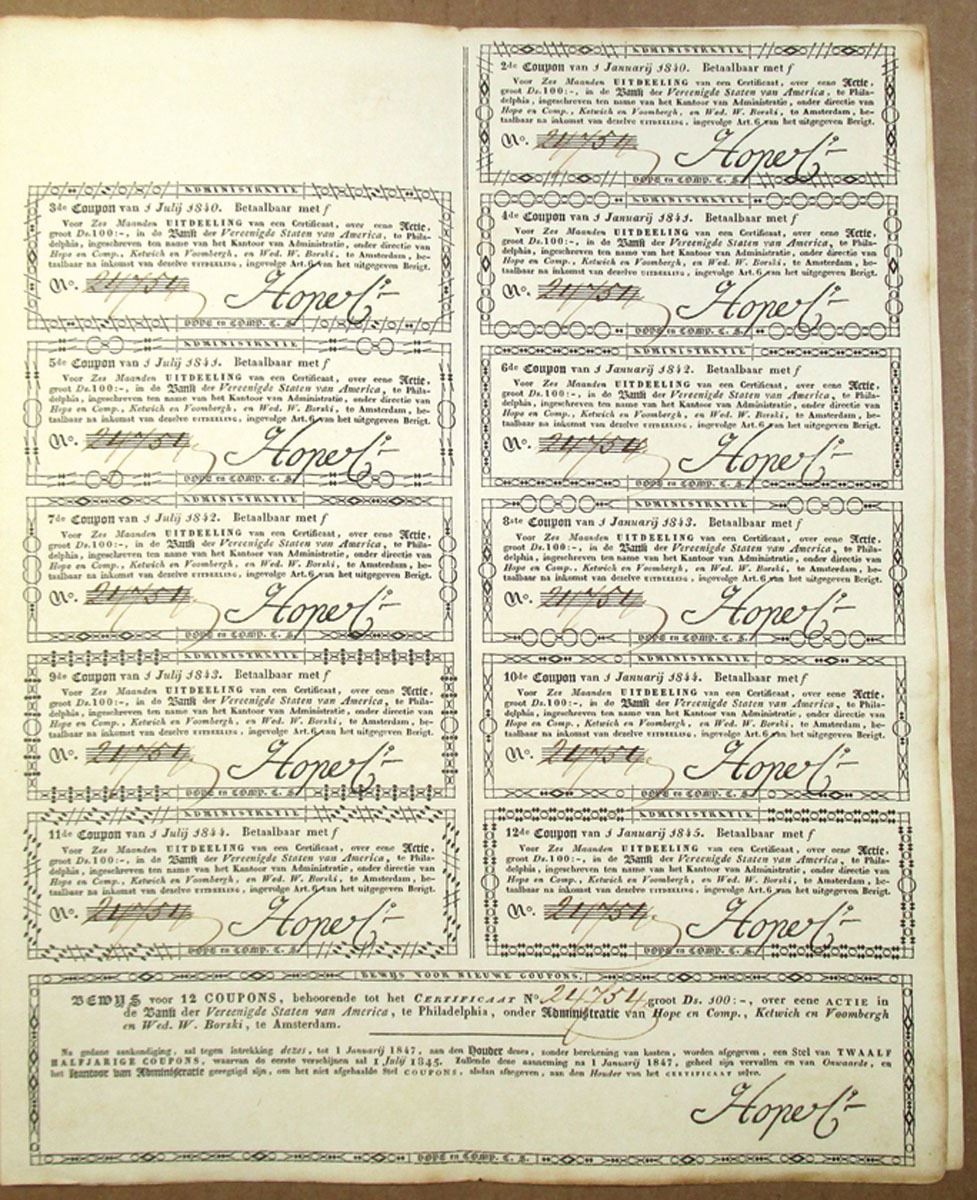 ADMINISTRATIE
2de Coupon van 1 Januarij 1840. Betaalbaar met f
Voor Zes Maanden UITDEELING van een Certificaat, over eene Actie,
groot Ds. 100:-, in de Bank der Vereenigde Staten van America, te Phila-
delphia, ingeschreven ten name van het Kantoor van Administratie, onder directie van
Hope en Comp., Ketwich en Voombergh, en Wed. W. Borski, te Amsterdam, be-
taalbaar na inkomst van dezelve UITDEELING, ingevolge Art. 6 van het uitgegeven Berigt.
No. 24754 Hope & Co
HOPE en COMP. C. S.
ADMINISTRATIE
3de Coupon van 1 Julij 1840. Betaalbaar met f
Voor Zes Maanden UITDEELING van een Certificaat, over eene Actie,
groot Ds. 100:-, in de Bank der Vereenigde Staten van America, te Phila-
delphia, ingeschreven ten name van het Kantoor van Administratie, onder directie van
Hope en Comp., Ketwich en Voombergh, en Wed. W. Borski, te Amsterdam, be-
taalbaar na inkomst van dezelve UITDEELING, ingevolge Art. 6 van het uitgegeven Berigt.
No. 24754 Hope & Co
HOPE en COMP. C. S.
ADMINISTRATIE
4de Coupon van 1 Januarij 1841. Betaalbaar met f
Voor Zes Maanden UITDEELING van een Certificaat, over eene Actie,
groot Ds. 100:-, in de Bank der Vereenigde Staten van America, te Phila-
delphia, ingeschreven ten name van het Kantoor van Administratie, onder directie van
Hope en Comp., Ketwich en Voombergh, en Wed. W. Borski, te Amsterdam, be-
taalbaar na inkomst van dezelve UITDEELING, ingevolge Art. 6 van het uitgegeven Berigt.
No. 24754 Hope & Co
HOPE en COMP. C. S.
ADMINISTRATIE
5de Coupon van 1 Julij 1841. Betaalbaar met f
Voor Zes Maanden UITDEELING van een Certificaat, over eene Actie,
groot Ds. 100:-, in de Bank der Vereenigde Staten van America, te Phila-
delphia, ingeschreven ten name van het Kantoor van Administratie, onder directie van
Hope en Comp., Ketwich en Voombergh, en Wed. W. Borski, te Amsterdam, be-
taalbaar na inkomst van dezelve UITDEELING, ingevolge Art. 6 van het uitgegeven Berigt.
No. 24754 Hope & Co
HOPE en COMP. C. S.
ADMINISTRATIE
6de Coupon van 1 Januarij 1842. Betaalbaar met f
Voor Zes Maanden UITDEELING van een Certificaat, over eene Actie,
groot Ds. 100:-, in de Bank der Vereenigde Staten van America, te Phila-
delphia, ingeschreven ten name van het Kantoor van Administratie, onder directie van
Hope en Comp., Ketwich en Voombergh, en Wed. W. Borski, te Amsterdam, be-
taalbaar na inkomst van dezelve UITDEELING, ingevolge Art. 6 van het uitgegeven Berigt.
No. 24754 Hope & Co
HOPE en COMP. C. S.
ADMINISTRATIE
7de Coupon van 1 Julij 1842. Betaalbaar met f
Voor Zes Maanden UITDEELING van een Certificaat, over eene Actie,
groot Ds. 100:-, in de Bank der Vereenigde Staten van America, te Phila-
delphia, ingeschreven ten name van het Kantoor van Administratie, onder directie van
Hope en Comp., Ketwich en Voombergh, en Wed. W. Borski, te Amsterdam, be-
taalbaar na inkomst van dezelve UITDEELING, ingevolge Art. 6 van het uitgegeven Berigt.
No. 24754 Hope & Co
HOPE en COMP. C. S.
ADMINISTRATIE
8ste Coupon van 1 Januarij 1843. Betaalbaar met f
Voor Zes Maanden UITDEELING van een Certificaat, over eene Actie,
groot Ds. 100:-, in de Bank der Vereenigde Staten van America, te Phila-
delphia, ingeschreven ten name van het Kantoor van Administratie, onder directie van
Hope en Comp., Ketwich en Voombergh, en Wed. W. Borski, te Amsterdam, be-
taalbaar na inkomst van dezelve UITDEELING, ingevolge Art. 6 van het uitgegeven Berigt.
No. 24754 Hope & Co
HOPE en COMP. C. S.
ADMINISTRATIE
9de Coupon van 1 Julij 1843. Betaalbaar met f
Voor Zes Maanden UITDEELING van een Certificaat, over eene Actie,
groot Ds. 100:-, in de Bank der Vereenigde Staten van America, te Phila-
delphia, ingeschreven ten name van het Kantoor van Administratie, onder directie van
Hope en Comp., Ketwich en Voombergh, en Wed. W. Borski, te Amsterdam, be-
taalbaar na inkomst van dezelve UITDEELING, ingevolge Art. 6 van het uitgegeven Berigt.
No. 24754 Hope & Co
HOPE en COMP. C. S.
ADMINISTRATIE
10de Coupon van 1 Januarij 1844. Betaalbaar met f
Voor Zes Maanden UITDEELING van een Certificaat, over eene Actie,
groot Ds. 100:-, in de Bank der Vereenigde Staten van America, te Phila-
delphia, ingeschreven ten name van het Kantoor van Administratie, onder directie van
Hope en Comp., Ketwich en Voombergh, en Wed. W. Borski, te Amsterdam, be-
taalbaar na inkomst van dezelve UITDEELING, ingevolge Art. 6 van het uitgegeven Berigt.
No. 24754 Hope & Co
HOPE en COMP. C. S.
ADMINISTRATIE
11de Coupon van 1 Julij 1844. Betaalbaar met f
Voor Zes Maanden UITDEELING van een Certificaat, over eene Actie,
groot Ds. 100:-, in de Bank der Vereenigde Staten van America, te Phila-
delphia, ingeschreven ten name van het Kantoor van Administratie, onder directie van
Hope en Comp., Ketwich en Voombergh, en Wed. W. Borski, te Amsterdam, be-
taalbaar na inkomst van dezelve UITDEELING, ingevolge Art. 6 van het uitgegeven Berigt.
No. 24754 Hope & Co
HOPE en COMP. C. S.
ADMINISTRATIE
12de Coupon van 1 Januarij 1845. Betaalbaar met f
Voor Zes Maanden UITDEELING van een Certificaat, over eene Actie,
groot Ds. 100:-, in de Bank der Vereenigde Staten van America, te Phila-
delphia, ingeschreven ten name van het Kantoor van Administratie, onder directie van
Hope en Comp., Ketwich en Voombergh, en Wed. W. Borski, te Amsterdam, be-
taalbaar na inkomst van dezelve UITDEELING, ingevolge Art. 6 van het uitgegeven Berigt.
No. 24754 Hope & Co
HOPE en COMP. C. S.
BEWIJS VOOR NIEUWE COUPONS.
BEWIJS voor 12 COUPONS, behoorende tot het CERTIFICAAT No. 24754 groot Ds. 100:-, over eene ACTIE in
de Bank der Vereenigde Staten van America, te Philadelphia, onder Administratie van Hope en Comp., Ketwich en Voombergh
en Wed. W. Borski, te Amsterdam.
Na gedane aankondiging, zal tegen intrekking dezes, tot 1 Januarij 1847, aan den Houder dezes, zonder berekening van kosten, worden afgegeven, een Stel van TWAALF
HALFJARIGE COUPONS, waarvan de eerste verschijnen zal 1 Julij 1845. Zullende deze aanneming na 1 Januarij 1847, geheel zijn vervallen en van Onwaarde, en
het Kantoor van Administratie geregtigd zijn, om het niet afgehaalde Stel COUPONS, alsdan aftegeven, aan den Houder van het CERTIFICAAT zelve.
Hope & Co
HOPE en COMP. C. S.